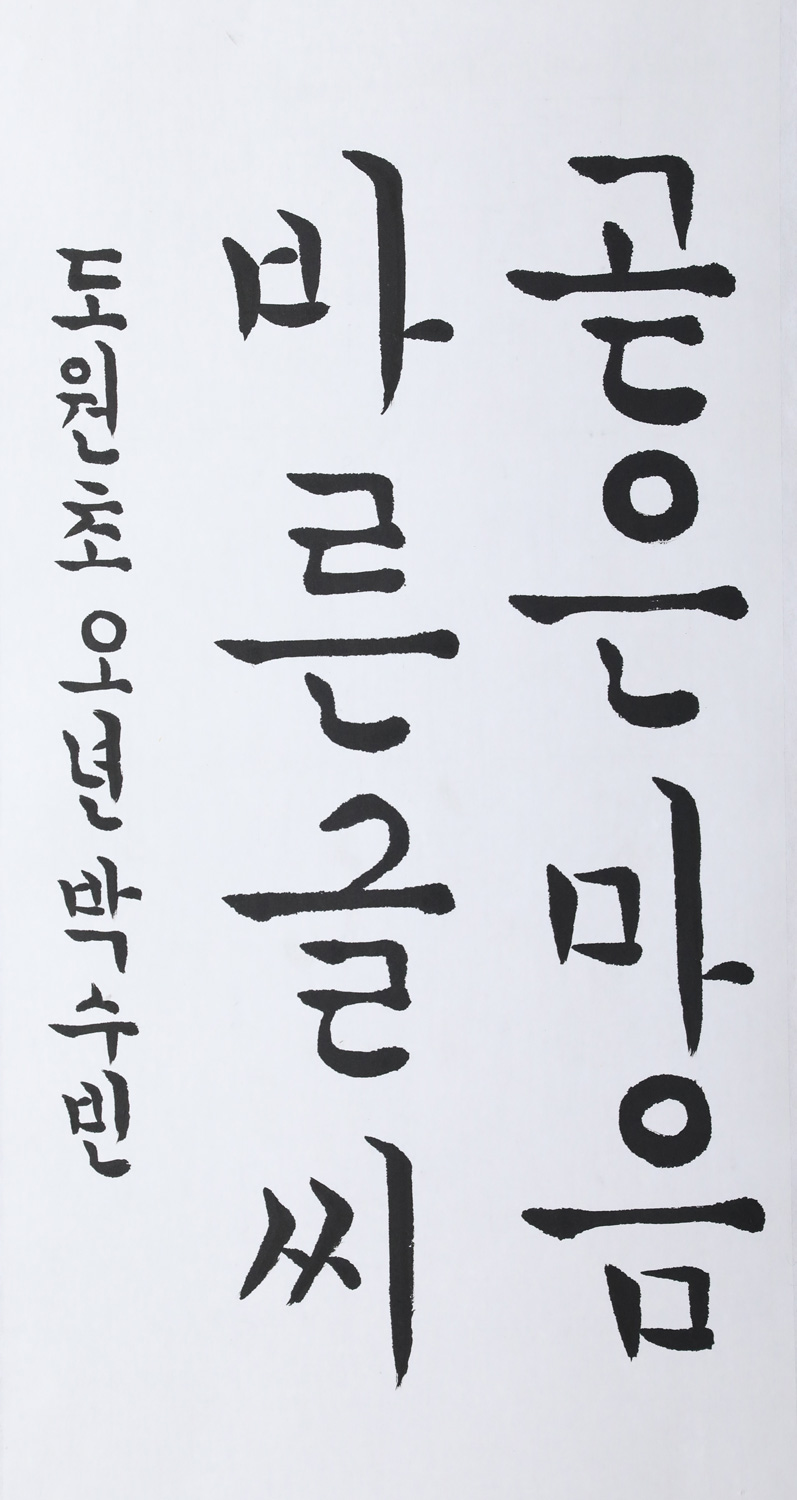 곧은마음
바른글씨
도원초 오년 박수빈